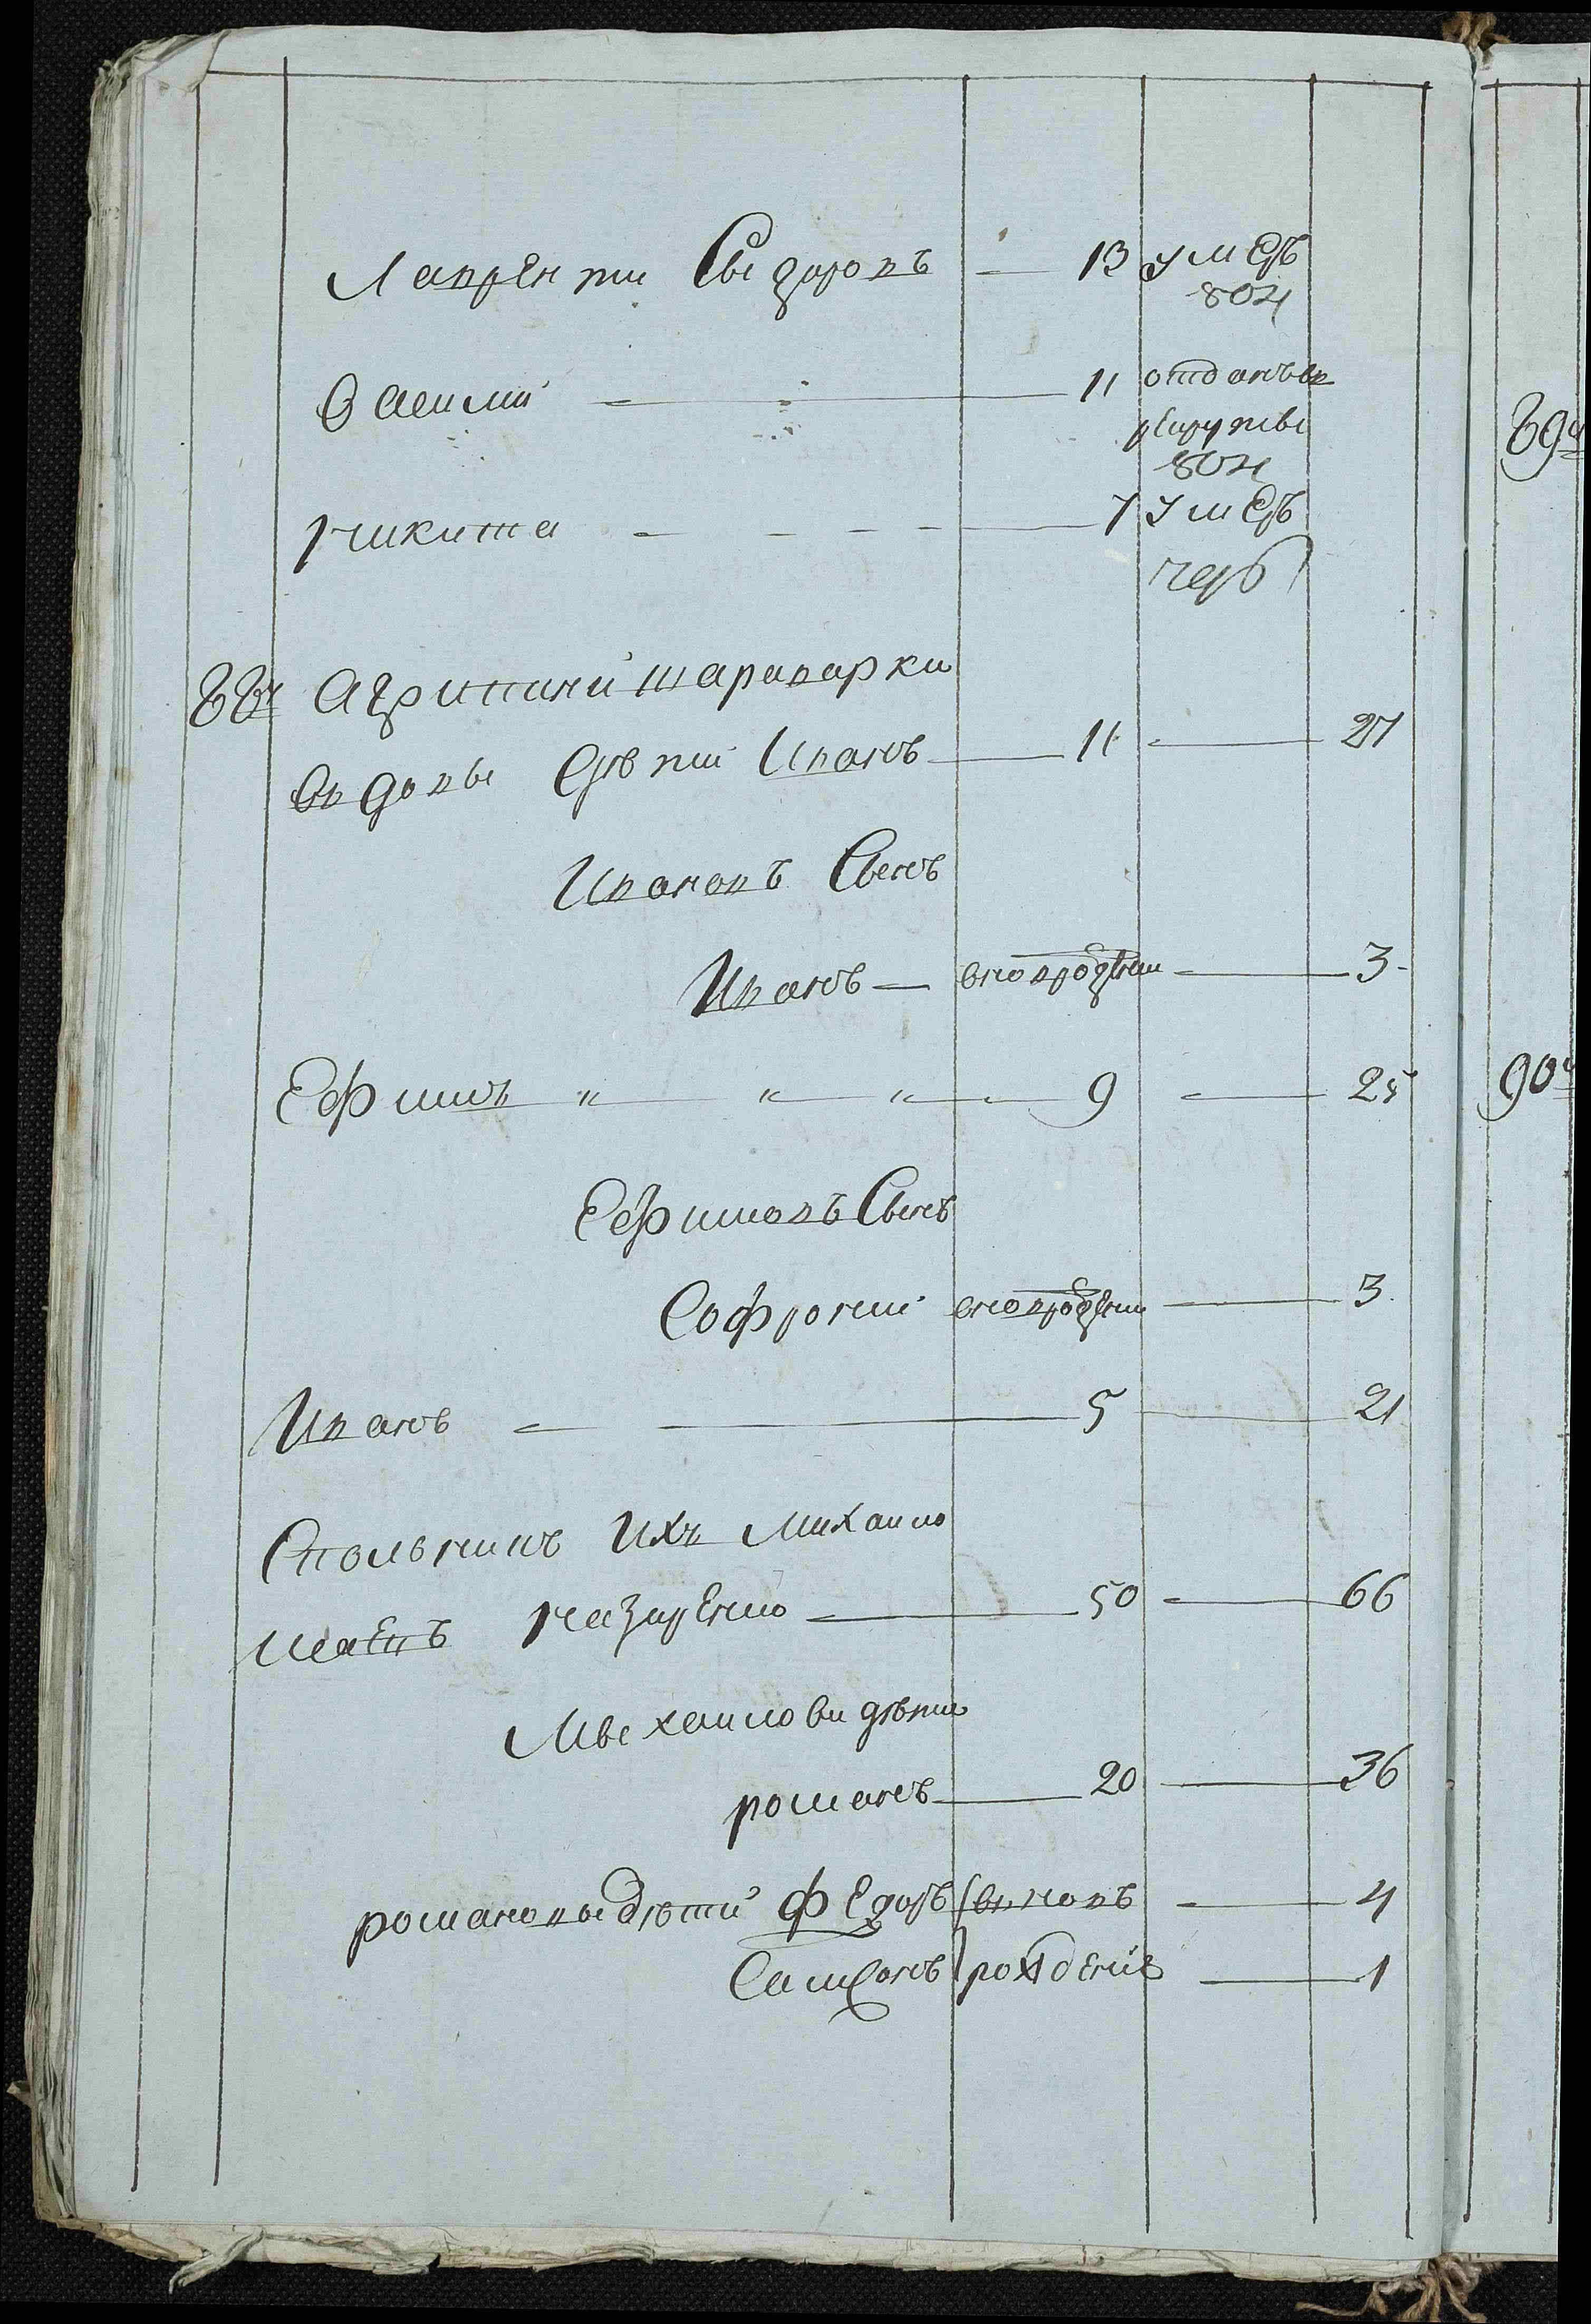 Лаврентий Сидоровъ — 13 умеръ
804
Василий — 11 отданъ въ
рекруты
804
Никита — 7 умеръ
88й Агрипини шараварки
вдовы Дѣти Иванъ — 11 — 27
Ивановъ Сынъ
Иванъ — вновродженъ — 3
Ефимъ " " " — 9 — 25
Ефимовъ Сынъ
Софроний вновродженъ — 3
Иванъ — 5 — 21
Сполники ихъ Михаило
Назаренко — 50 — 66
Михаилови дѣти
романъ — 20 — 36
романовы дѣти Федоръ въ новъ — 4
Самсонъ рожденіе — 1
89й
90й